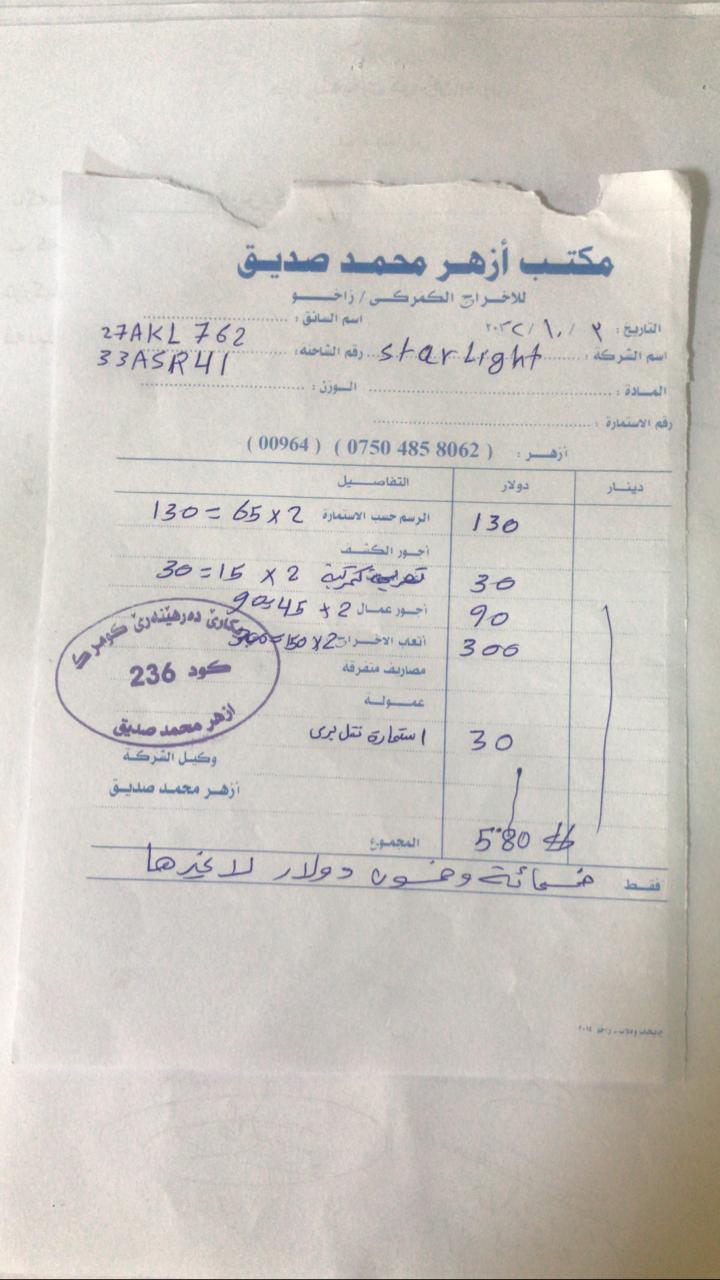 مكتب أزهر محمد صديق
للاخراج الكمركي / زاخو
التاريخ : ٢ / ١٠ / ٢٠٢٢ اسم السائق :
27AKL 762
اسم الشركة : star Light رقم الشاحنة : 33ASR41
المادة : الوزن :
رقم الاستمارة :
أزهر : ( 0750 485 8062 ) ( 00964 )
دينار دولار التفاصيل
130 الرسم حسب الاستمارة 130 = 65 x 2
أجور الكشف
30 كمركية 30 = 15 x 2
90 أجور عمال 90 = 45 x 2
300 أتعاب الاخراج 300 = 150 x 2
مصاريف متفرقة
عمولة
30 استمارة نقل بري
دەرهێنەرێ کومرکا
كود 236
ازهر محمد صديق
وكيل الشركة
أزهر محمد صديق
المجموع 580 $
فقط خمسمائة وخمسون دولار لا غيرها